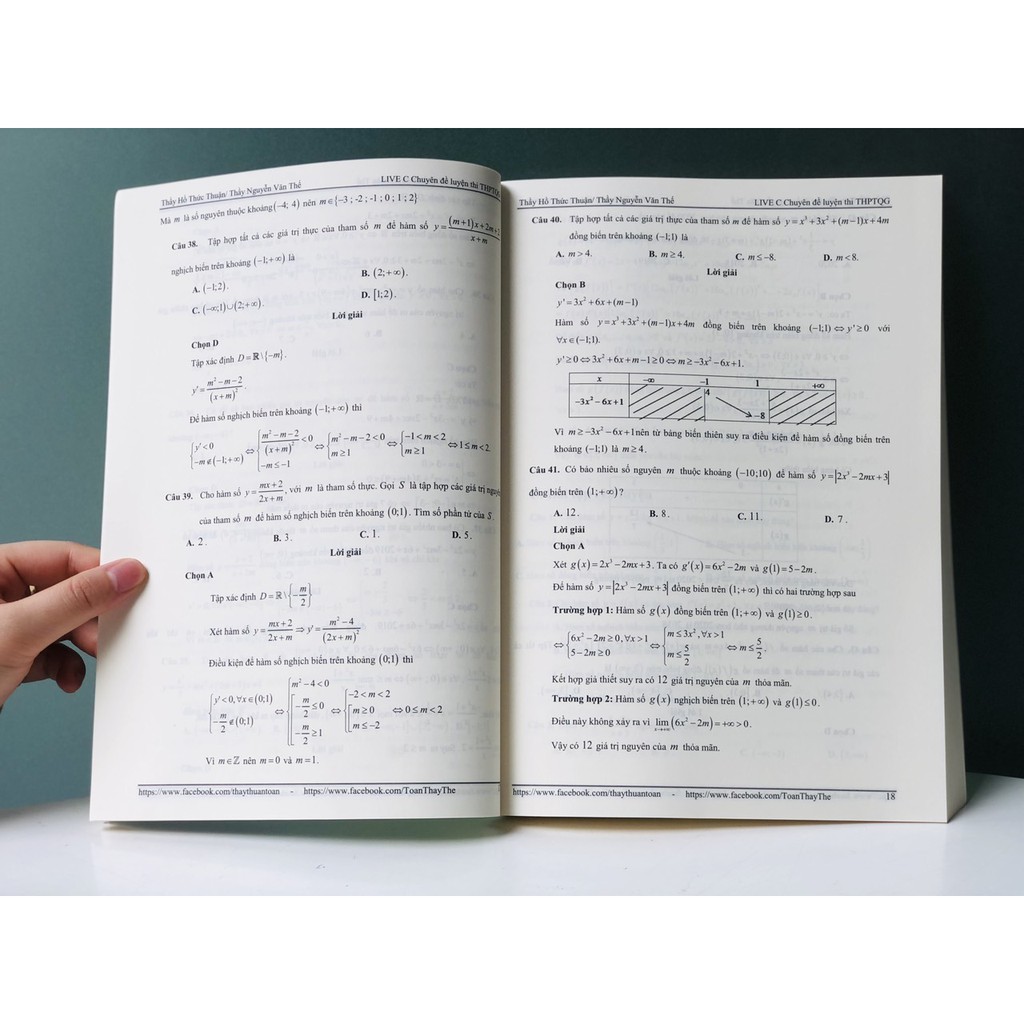 Thầy Hồ Thức Thuận/ Thầy Nguyễn Văn Thế LIVE C Chuyên đề luyện thi THPTQG
Mà m là số nguyên thuộc khoảng (−4; 4) nên m∈{−3 ; −2 ; −1 ; 0 ; 1 ; 2}
Câu 38. Tập hợp tất cả các giá trị thực của tham số m để hàm số y = ((m+1)x+2m+2)/(x+m)
nghịch biến trên khoảng (−1;+∞) là
A. (−1;2). B. (2;+∞).
C. (−∞;1)∪(2;+∞). D. [1;2).
Lời giải
Chọn D
Tập xác định D=ℝ\{−m}.
y' = (m²−m−2)/(x+m)².
Để hàm số nghịch biến trên khoảng (−1;+∞) thì
{y'<0; −m∉(−1;+∞) ⇔ {(m²−m−2)/(x+m)²<0; −m≤−1 ⇔ {m²−m−2<0; m≥1 ⇔ {−1<m<2; m≥1 ⇔ 1≤m<2.
Câu 39. Cho hàm số y = (mx+2)/(2x+m), với m là tham số thực. Gọi S là tập hợp các giá trị nguyên
của tham số m để hàm số nghịch biến trên khoảng (0;1). Tìm số phần tử của S.
A. 2. B. 3. C. 1. D. 5.
Lời giải
Chọn A
Tập xác định D=ℝ\{−m/2}
Xét hàm số y = (mx+2)/(2x+m) ⇒ y' = (m²−4)/(2x+m)²
Điều kiện để hàm số nghịch biến trên khoảng (0;1) thì
{y'<0,∀x∈(0;1); −m/2∉(0;1) ⇔ {m²−4<0; [−m/2≤0; −m/2≥1 ⇔ {−2<m<2; [m≥0; m≤−2 ⇔ 0≤m<2
Vì m∈ℤ nên m=0 và m=1.
https://www.facebook.com/thaythuantoan - https://www.facebook.com/ToanThayThe
Thầy Hồ Thức Thuận/ Thầy Nguyễn Văn Thế LIVE C Chuyên đề luyện thi THPTQG
Câu 40. Tập hợp tất cả các giá trị thực của tham số m để hàm số y=x³+3x²+(m−1)x+4m
đồng biến trên khoảng (−1;1) là
A. m>4. B. m≥4. C. m≤−8. D. m<8.
Lời giải
Chọn B
y'=3x²+6x+(m−1)
Hàm số y=x³+3x²+(m−1)x+4m đồng biến trên khoảng (−1;1)⇔y'≥0 với
∀x∈(−1;1).
y'≥0⇔3x²+6x+m−1≥0⇔m≥−3x²−6x+1.
x −∞ −1 1 +∞
−3x²−6x+1 4 −8
Vì m≥−3x²−6x+1nên từ bảng biến thiên suy ra điều kiện để hàm số đồng biến trên
khoảng (−1;1) là m≥4.
Câu 41. Có bao nhiêu số nguyên m thuộc khoảng (−10;10) để hàm số y=|2x³−2mx+3|
đồng biến trên (1;+∞)?
A. 12. B. 8. C. 11. D. 7.
Lời giải
Chọn A
Xét g(x)=2x³−2mx+3. Ta có g'(x)=6x²−2m và g(1)=5−2m.
Để hàm số y=|2x³−2mx+3| đồng biến trên (1;+∞) thì có hai trường hợp sau
Trường hợp 1: Hàm số g(x) đồng biến trên (1;+∞) và g(1)≥0.
⇔ {6x²−2m≥0,∀x>1; 5−2m≥0 ⇔ {m≤3x²,∀x>1; m≤5/2 ⇔ m≤5/2.
Kết hợp giả thiết suy ra có 12 giá trị nguyên của m thỏa mãn.
Trường hợp 2: Hàm số g(x) nghịch biến trên (1;+∞) và g(1)≤0.
Điều này không xảy ra vì lim x→+∞ (6x²−2m)=+∞>0.
Vậy có 12 giá trị nguyên của m thỏa mãn.
https://www.facebook.com/thaythuantoan - https://www.facebook.com/ToanThayThe 18